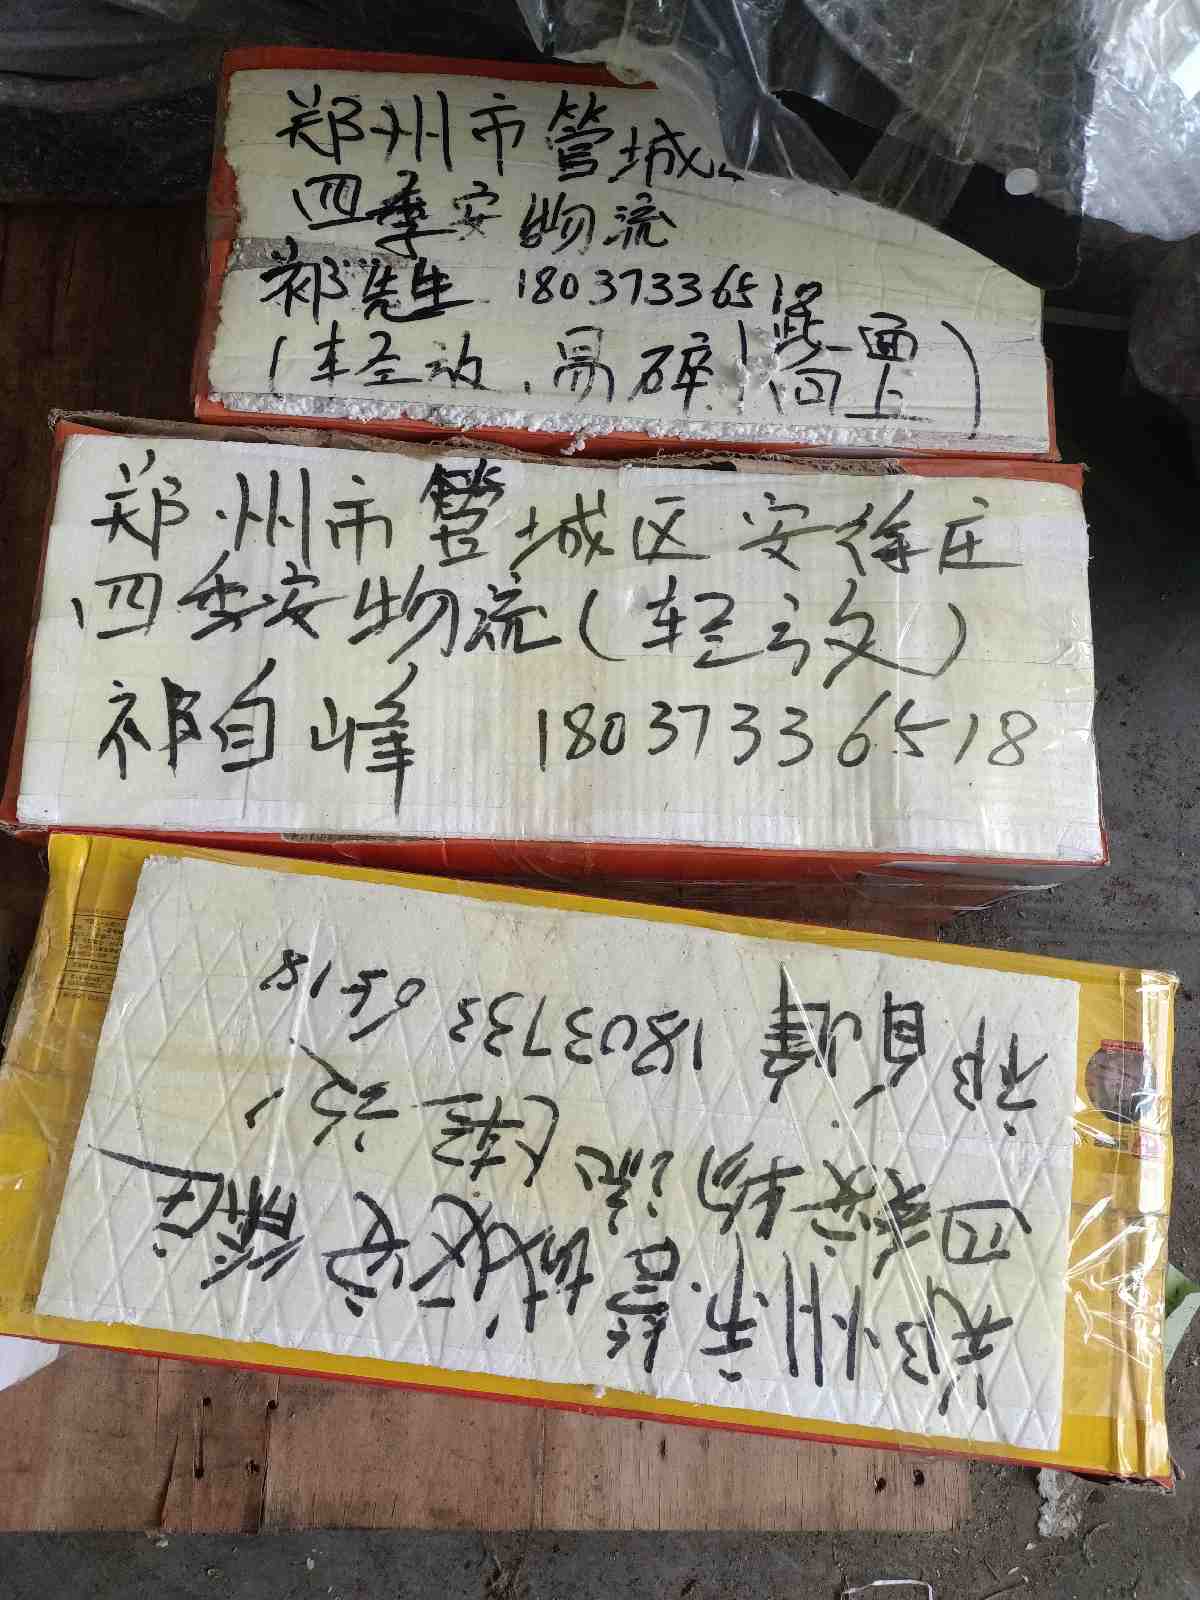 郑州市管城
四季安物流
祁先生 18037336518
(轻放、易碎、此面向上)
郑州市管城区安徐庄
四季安物流(轻放)
祁自峰 18037336518
郑州市管城区安徐庄
四季安物流(轻放)
祁自峰 18037336518